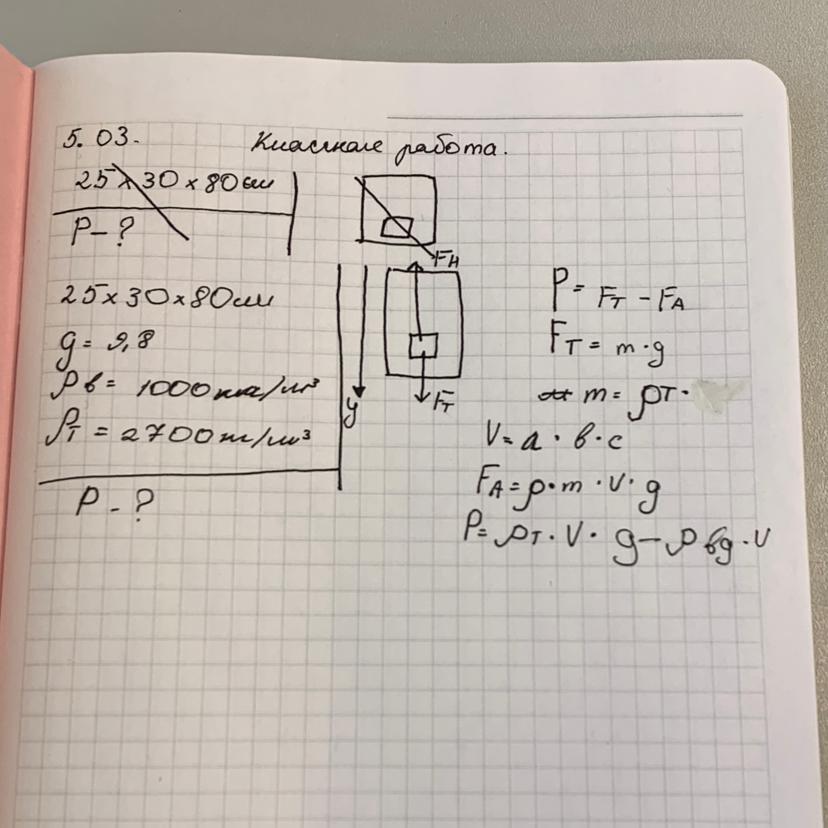 5. 03. Классная работа.
25 x 30 x 80см
P - ?
25 x 30 x 80см
g = 9,8
ρв = 1000кг/м³
ρт = 2700кг/м³
P - ?
FA
y
Fт
P = Fт - FA
Fт = m · g
m = ρт ·
V = a · в · c
FA = ρ · m · V · g
P = ρт · V · g - ρвg · V